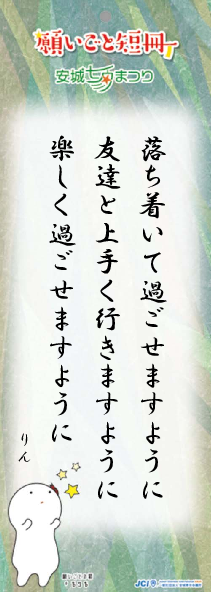 願いごと短冊
安城七夕まつり
落ち着いて過ごせますように
友達と上手く行きますように
楽しく過ごせますように
りん
JCI